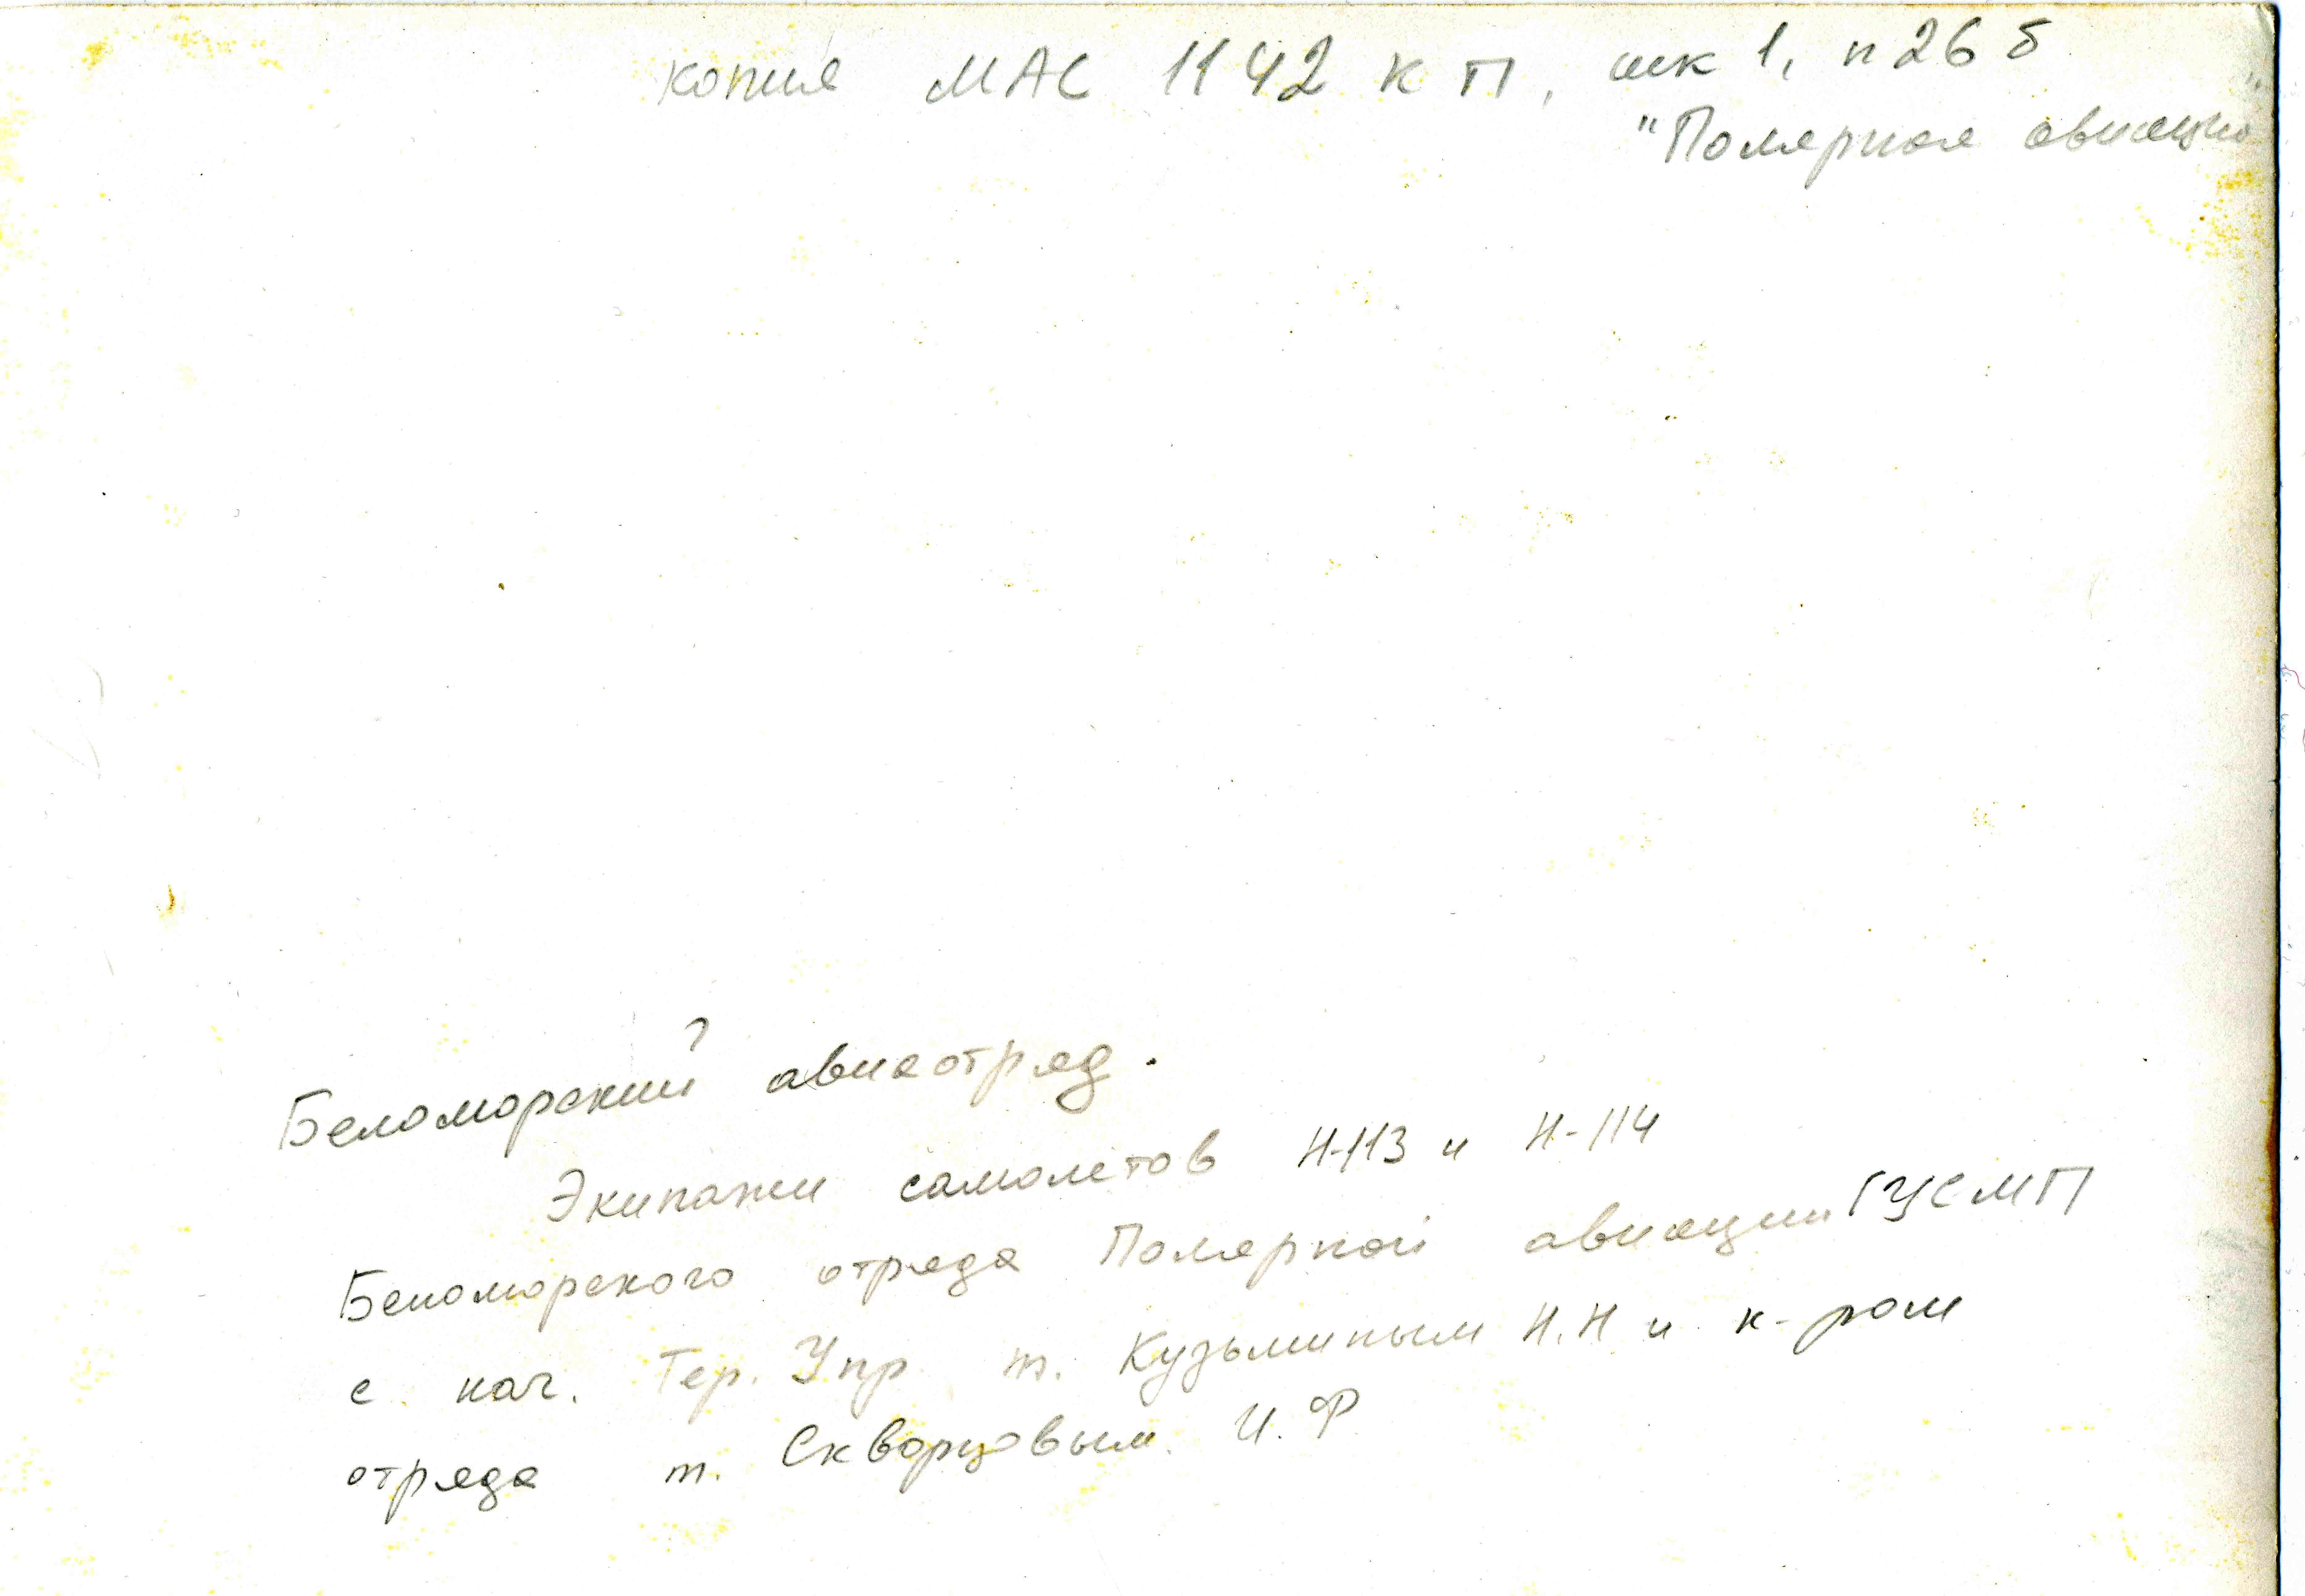 копия МАС 1142 КП, шк 1, п 26 б
"Полярная авиация"
Беломорский авиаотряд.
Экипажи самолетов Н-113 и Н-114
Беломорского отряда Полярной авиации ГУСМП
с нач. Тер. Упр т. Кузьминым Н.Н и к-ром
отряда т. Скворцовым. И.Ф